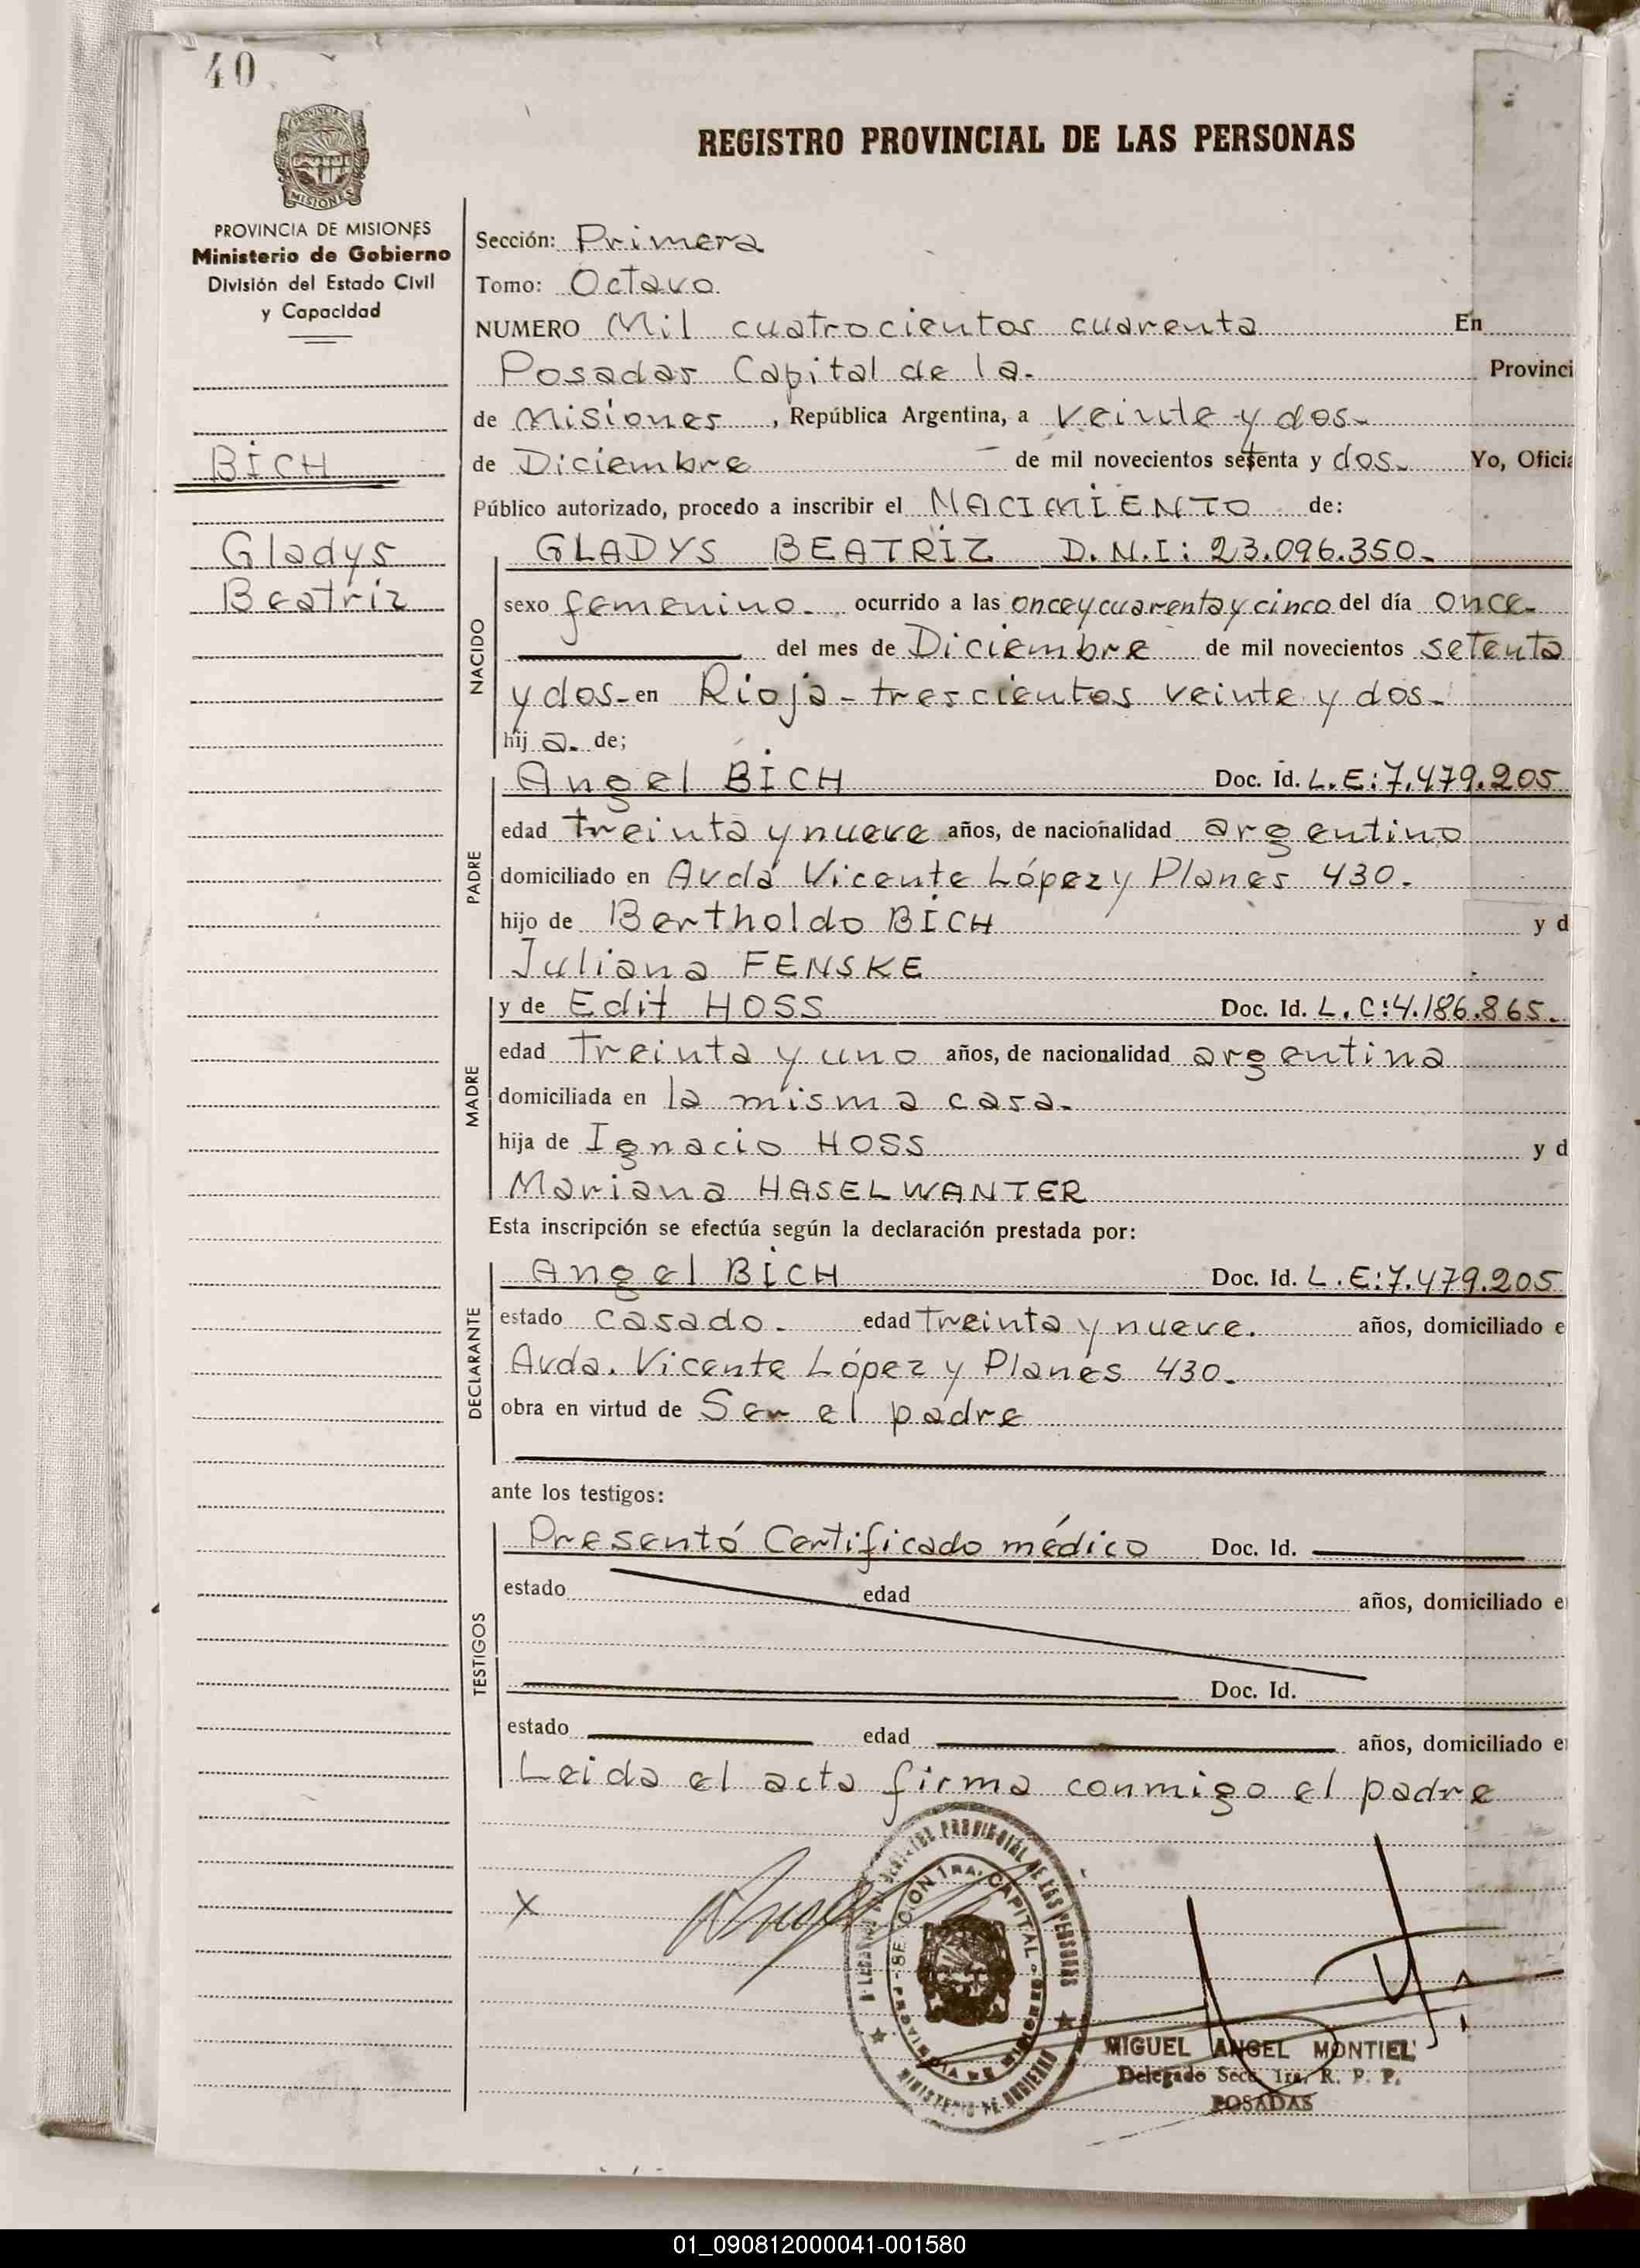 40
REGISTRO PROVINCIAL DE LAS PERSONAS
PROVINCIA DE MISIONES
Ministerio de Gobierno
División del Estado Civil
y Capacidad
BICH
Gladys
Beatriz
Sección: Primera
Tomo: Octavo
NUMERO Mil cuatrocientos cuarenta En
Posadas Capital de la. Provinci
de Misiones, República Argentina, a veinte y dos-
de Diciembre de mil novecientos setenta y dos- Yo, Oficia
Público autorizado, procedo a inscribir el NACIMIENTO de:
NACIDO
GLADYS BEATRIZ D.N.I: 23.096.350-
sexo femenino- ocurrido a las once y cuarenta y cinco del día once-
del mes de Diciembre de mil novecientos setenta
y dos- en Rioja - trescientos veinte y dos-
hij a. de;
PADRE
Angel BICH Doc. Id. L.E: 7.479.205
edad treinta y nueve años, de nacionalidad argentino
domiciliado en Avda Vicente López y Planes 430.
hijo de Bertholdo BICH y d
Juliana FENSKE
MADRE
y de Edit HOSS Doc. Id. L.C: 4.186.865-
edad treinta y uno años, de nacionalidad argentina
domiciliada en la misma casa-
hija de Ignacio HOSS y d
Mariana HASELWANTER
Esta inscripción se efectúa según la declaración prestada por:
DECLARANTE
Angel BICH Doc. Id. L.E: 7.479.205
estado casado- edad treinta y nueve. años, domiciliado e
Avda. Vicente López y Planes 430-
obra en virtud de Ser el padre
ante los testigos:
TESTIGOS
Presentó Certificado médico Doc. Id.
estado edad años, domiciliado e
Doc. Id.
estado edad años, domiciliado e
Leida el acta firma conmigo el padre
X
PROVINCIAL DE LAS PERSONAS
SECCION 1RA. CAPITAL
PROVINCIA DE MISIONES
MINISTERIO DE GOBIERNO
MIGUEL ANGEL MONTIEL
Delegado Secc. 1ra. R. P. P.
POSADAS
01_090812000041-001580